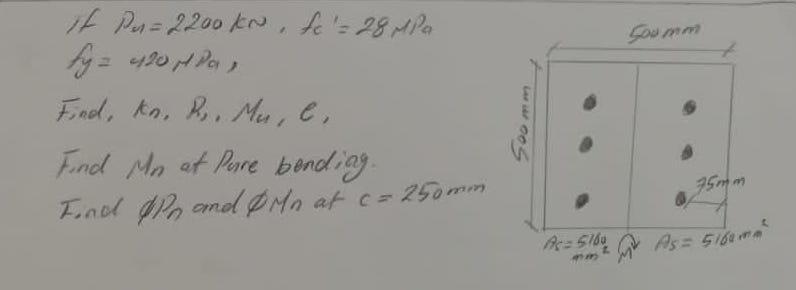 If Pu = 2200 kN, fc' = 28 MPa
fy = 420 MPa,
Find, Kn, Rn, Mu, e,
Find Mn at Pure bending.
Find ϕPn and ϕMn at c = 250 mm
500 mm
500 mm
75 mm
As = 5160 mm²
M
As = 5160 mm²